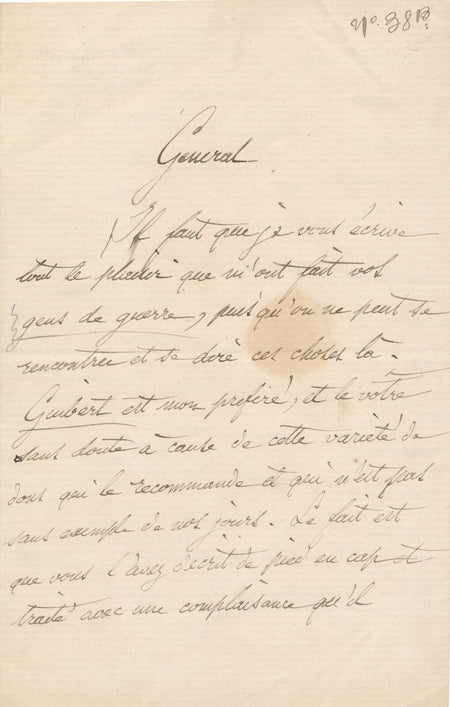 No. 38 B.
Général
Il faut que je vous écrive
tout le plaisir que m'ont fait vos
gens de guerre, puis qu'on ne peut se
rencontrer et se dire ces choses là.
Guibert est mon préféré, et le vôtre
sans doute à cause de cette variété de
dons qui le recommande et qui n'est pas
sans exemple de nos jours. Le fait est
que vous l'avez décrit de pied en cap et
traité avec une complaisance qu'il